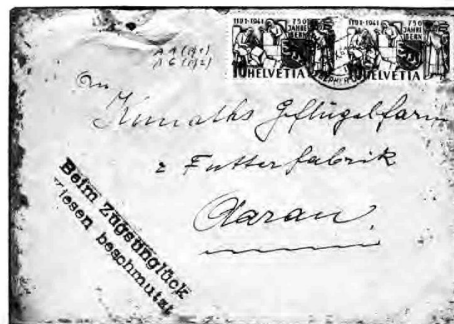 1191-1941 750 JAHRE BERN
10 HELVETIA
1191-1941 750 JAHRE BERN
10 HELVETIA
An
Kunaths Geflügelfarm
& Futterfabrik
Aarau.
Beim Zugsunglück
Wiesen beschmutzt